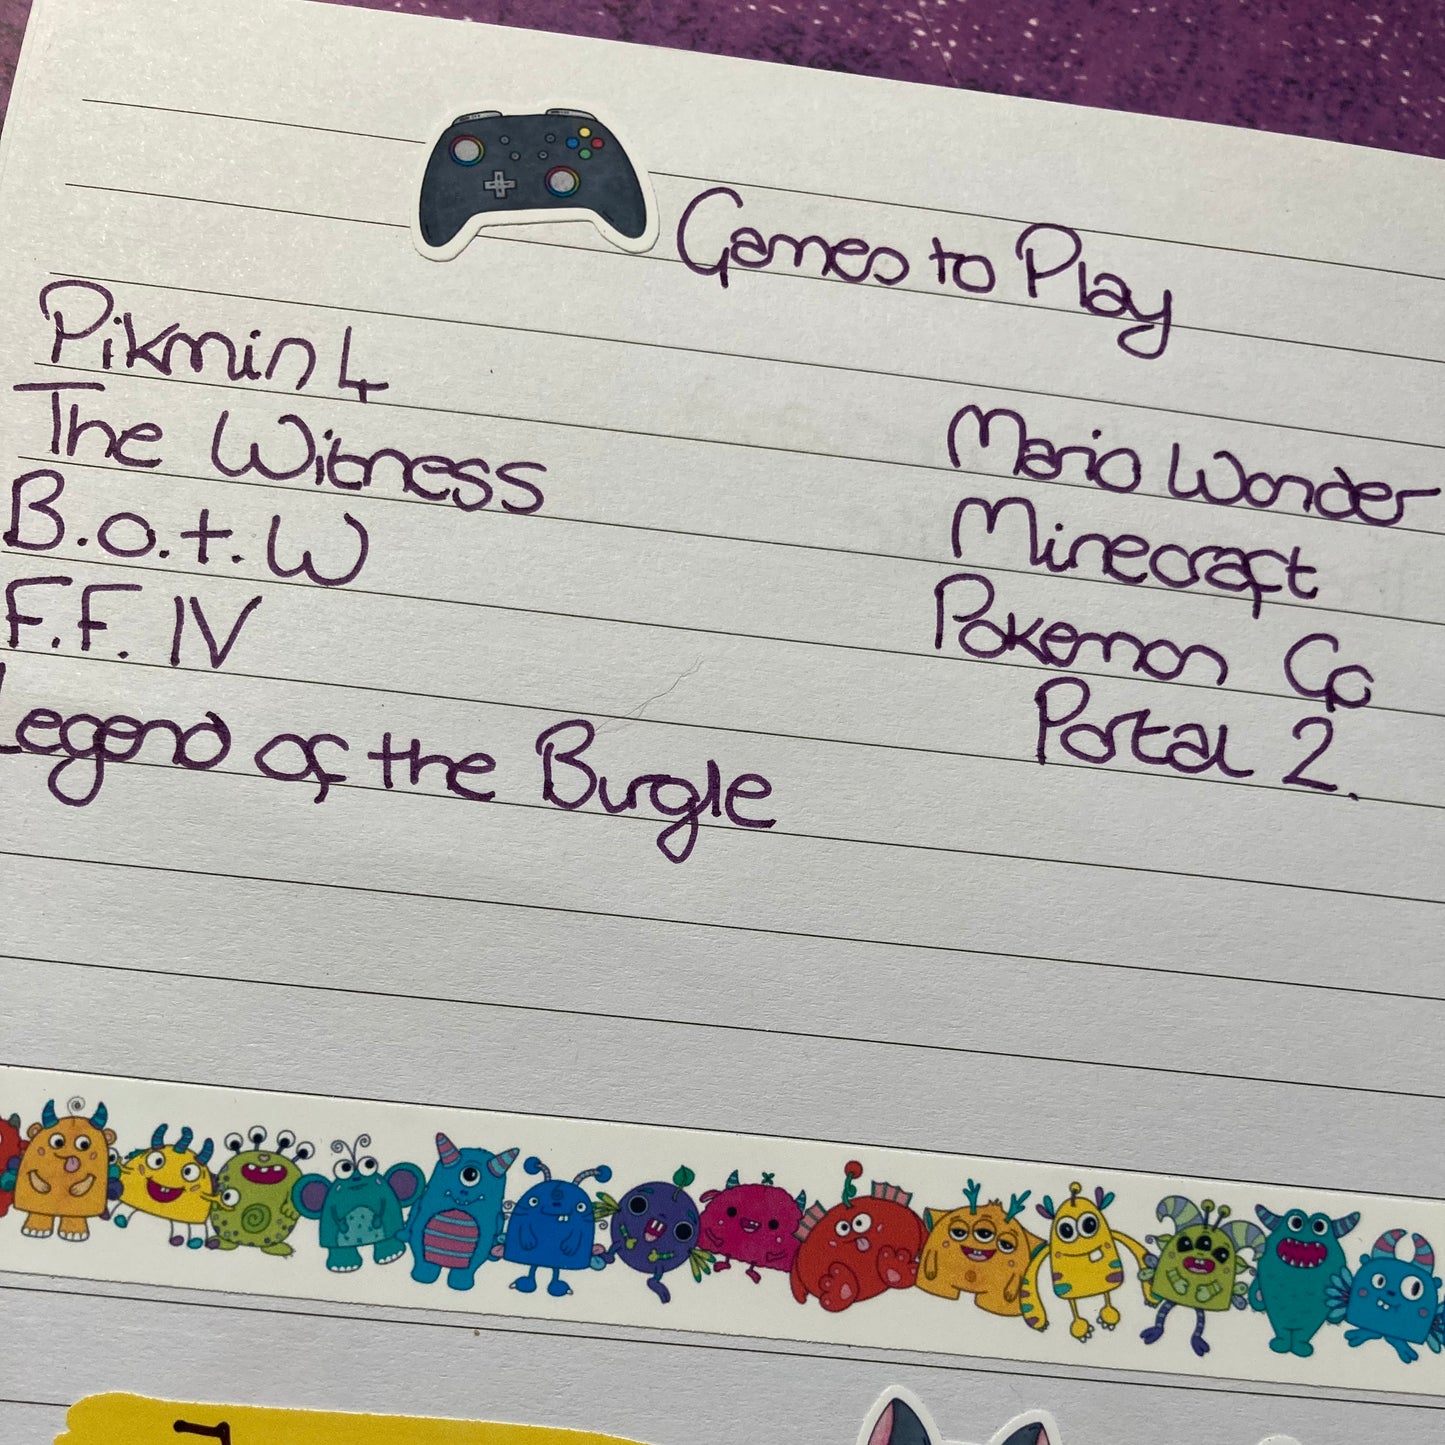 Games to Play
Pikmin 4
The Witness
B.o.t.W
F.F. IV
Legend of the Burgle
Mario Wonder
Minecraft
Pokemon Go
Portal 2.